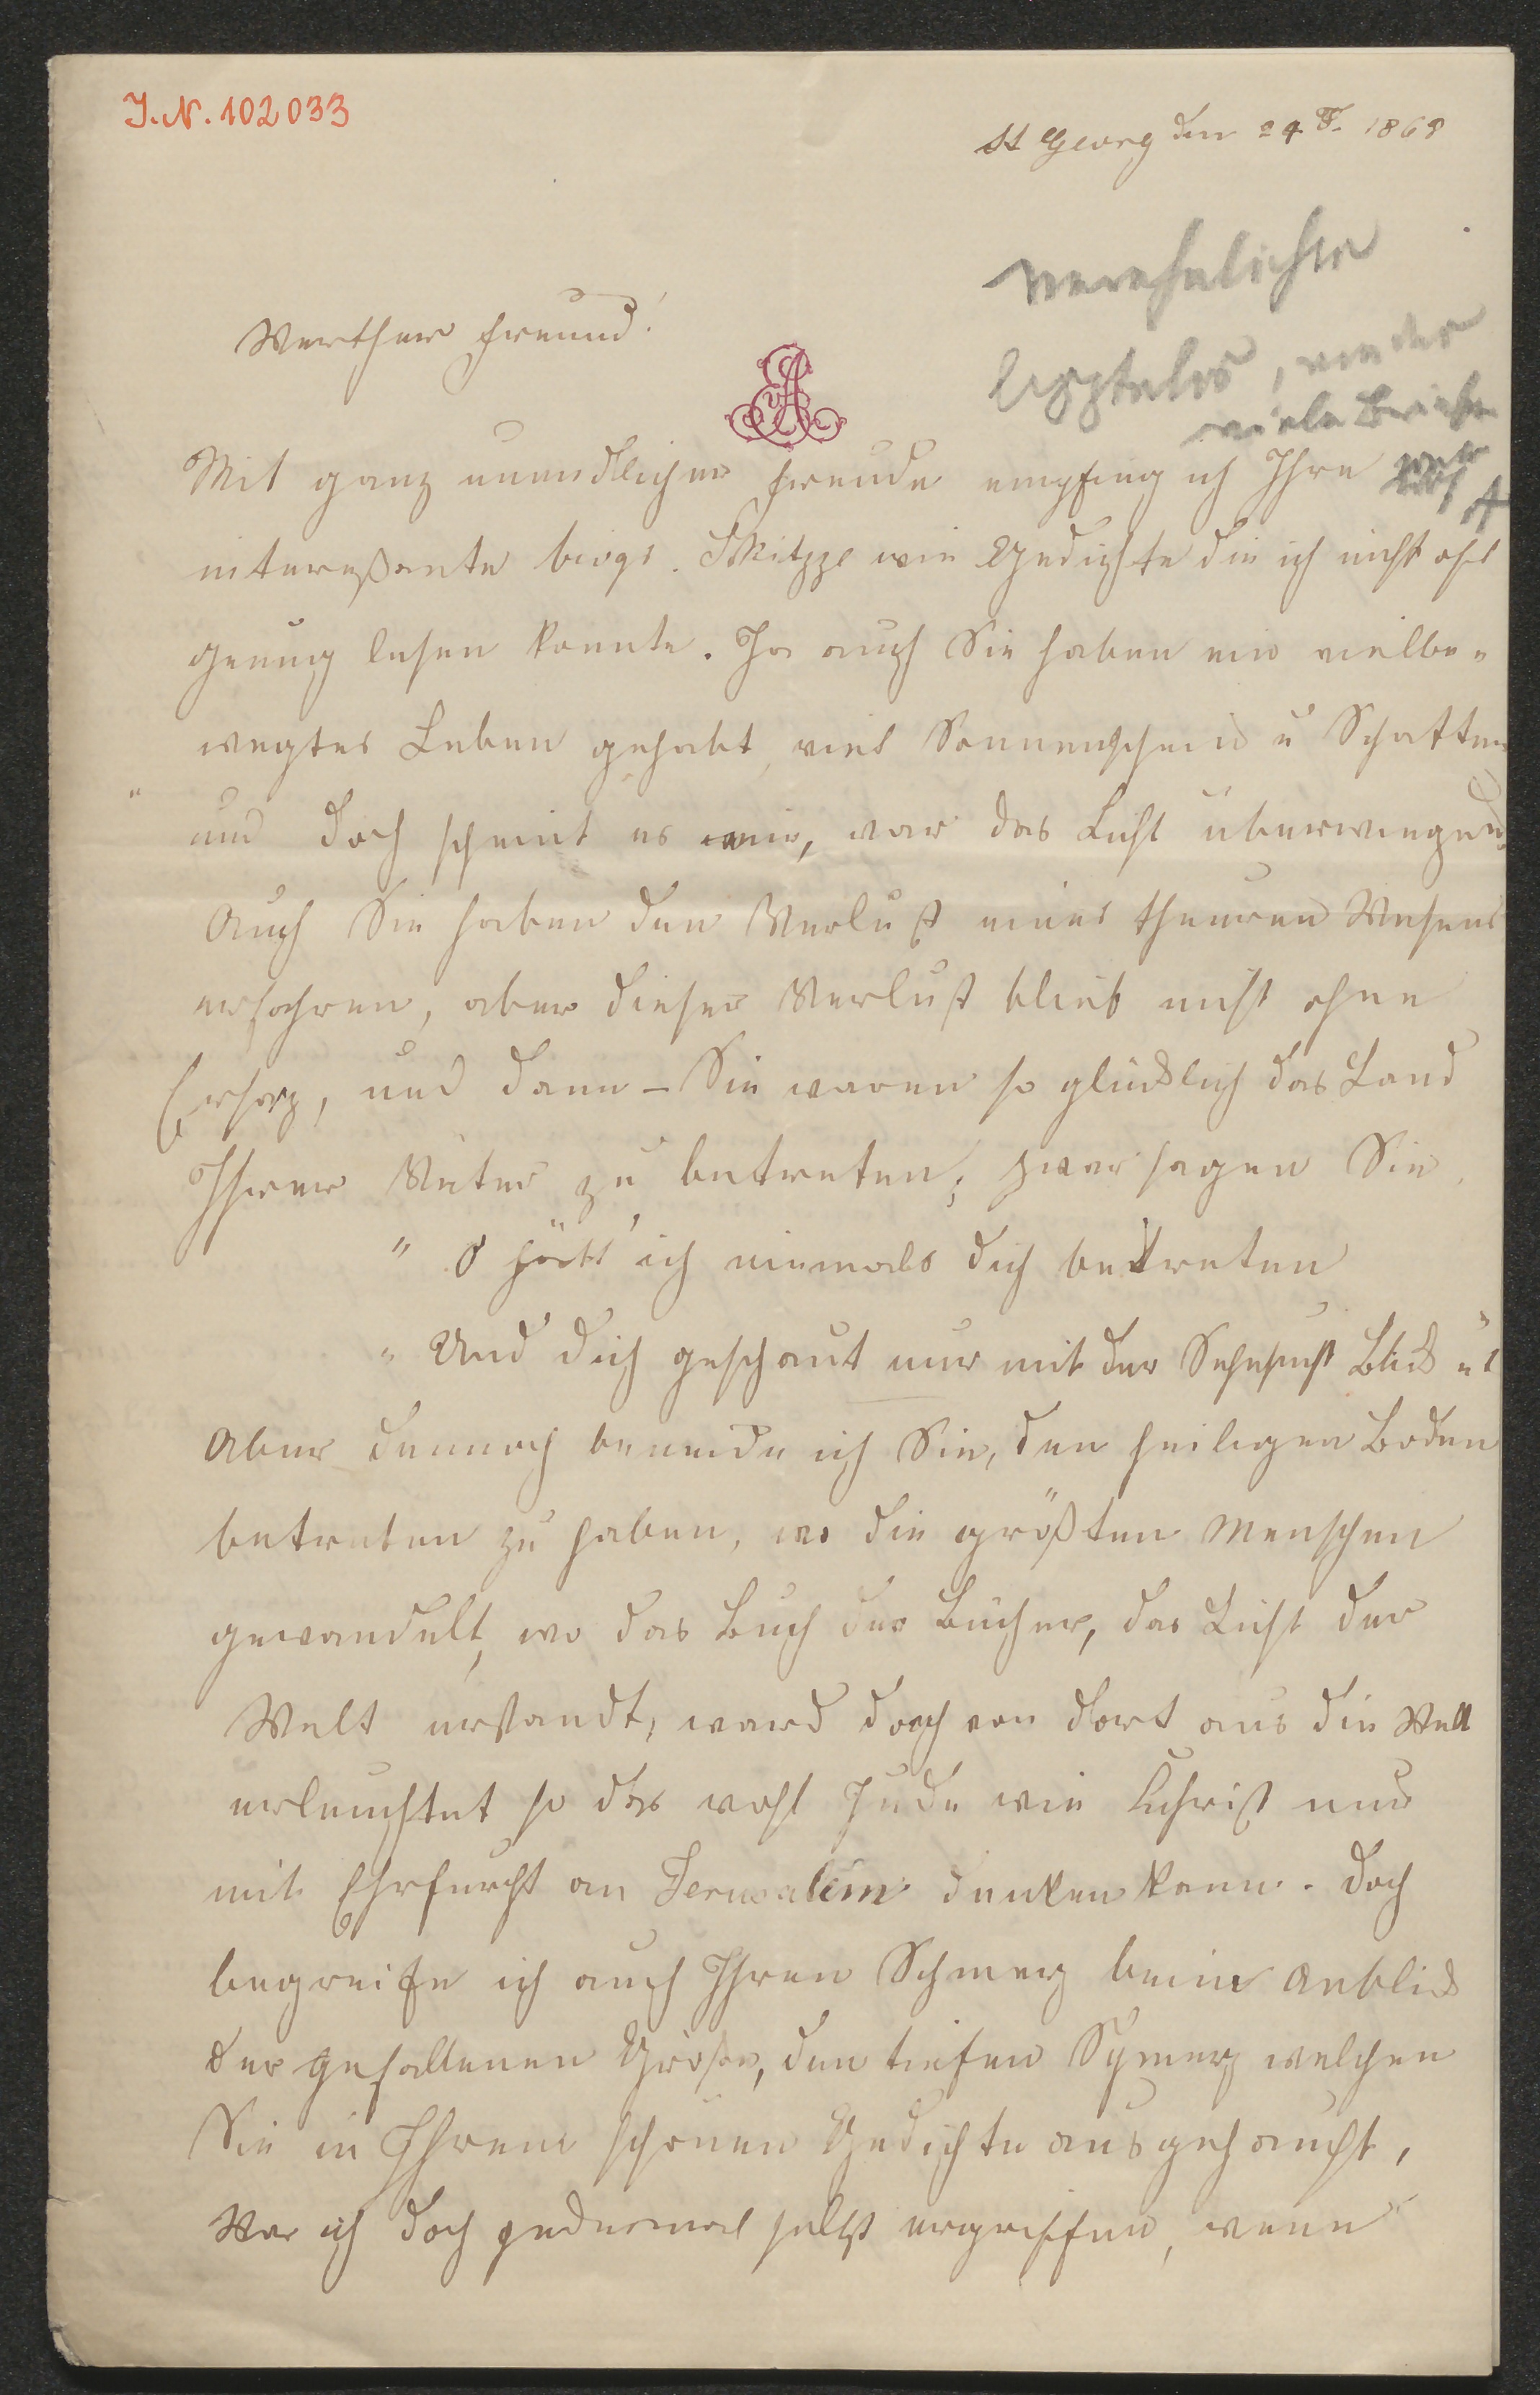 J.N. 102033
St Georg den 24. 1868
verehelichte
viele Briefe
Werther Freund!
Mit ganz unendlicher Freude empfing ich Ihre
intereßante biogr. Skitzze wie Gedichte die ich nicht oft
genug lesen konnte. Ja auch Sie haben ein vielbe-
wegtes Leben gehabt, viel Sonnenschein u Schatten
und doch scheint es mir, war das Licht überwiegend.
Auch Sie haben den Verlust eines theuren Wesens
erfahren, aber dieser Verlust blieb nicht ohne
Ersatz, und dann – Sie waren so glücklich das Land
Ihrer Väter zu betreten; zwar sagen Sie
" O hätt' ich niemals dich betreten
" Und dich geschaut nur mit der Sehnsucht Blick "
Aber dennoch beneide ich Sie, den heiligen Boden
betreten zu haben, wo die größten Menschen
gewandelt, wo das Buch der Bücher, das Licht der
Welt erstandt, ward doch von dort aus die Welt
erleuchtet so das wohl Jude wie Christ nur
mit Ehrfurcht an Jerusalem denken kann. Doch
begreife ich auch Ihren Schmerz beim Anblick
der gefallenen Größe, den tiefen Schmerz welchen
Sie in Ihrem schönen Gedichte ausgehaucht,
War ich doch jedesmal selbst ergriffen, wenn